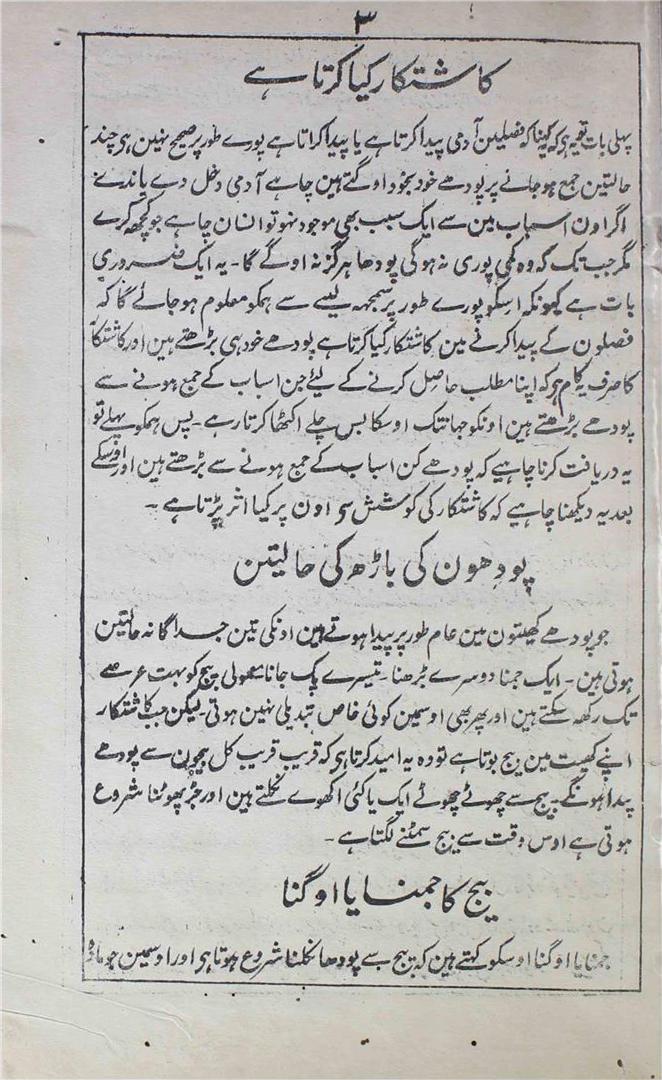 ۳
کاشتکار کیا کرتا ہے
پہلی بات تو یہ ہی کہ یہ کہنا کہ فصلین آدمی پیدا کرتا ہے یا پیدا کراتا ہے پورے طور پر صحیح نہین ہی چند
حالتین جمع ہو جانے پر پودھے خود بخود اوگتے ہین چاہے آدمی دخل دے یا نہ دے
اگر اون اسباب مین سے ایک سبب بھی موجود نہو تو انسان چاہے جو کچھ کرے
مگر جب تک کہ وہ کمی پوری نہ ہوگی پودھا ہرگز نہ اوگے گا۔ یہ ایک ضروری
بات ہے کیونکہ اسکو پورے طور پر سمجھ لینے سے ہمکو معلوم ہو جائے گا کہ
فصلون کے پیدا کرنے مین کاشتکار کیا کرتا ہے پودھے خود ہی بڑھتے ہین اور کاشتکار
کا صرف یہ کام ہی کہ اپنا مطلب حاصل کرنے کے لیئے جن اسباب کے جمع ہونے سے
پودھے بڑھتے ہین اونکو جہانتک اوسکا بس چلے اکٹھا کرتا رہے۔ پس ہمکو پہلے تو
یہ دریافت کرنا چاہیے کہ پودھے کن اسباب کے جمع ہونے سے بڑھتے ہین اور اوسکے
بعد یہ دیکھنا چاہیے کہ کاشتکار کی کوشش سی اون پر کیا اثر پڑتا ہے۔
پودھون کی باڑھ کی حالیتن
جو پودھے کھیتون مین عام طور پر پیدا ہوتے ہین اونکی تین جداگانہ حالتین
ہوتی ہین۔ ایک جمنا دوسرے بڑھنا۔ تیسرے پک جانا معمولی بیج کو بہت عرصے
تک رکھ سکتے ہین اور پھر بھی اوسمین کوئی خاص تبدیلی نہین ہوتی۔ لیکن جب کاشتکار
اپنے کھیت مین بیج بوتا ہے تو وہ یہ امید کرتا ہی کہ قریب قریب کل بیجون سے پودھے
پیدا ہونگے۔ بیج سے چھوٹے چھوٹے ایک یا کئی اکھوے نکلتے ہین اور جڑ پھوٹنا شروع
ہوتی ہے اوس وقت سے بیج سمٹنے لگتا ہے۔
بیج کا جمنا یا اوگنا
جمنا یا اوگنا اوسکو کہتے ہین کہ بیج سے پودھا نکلنا شروع ہوتا ہی اور اوسمین جو مادہ